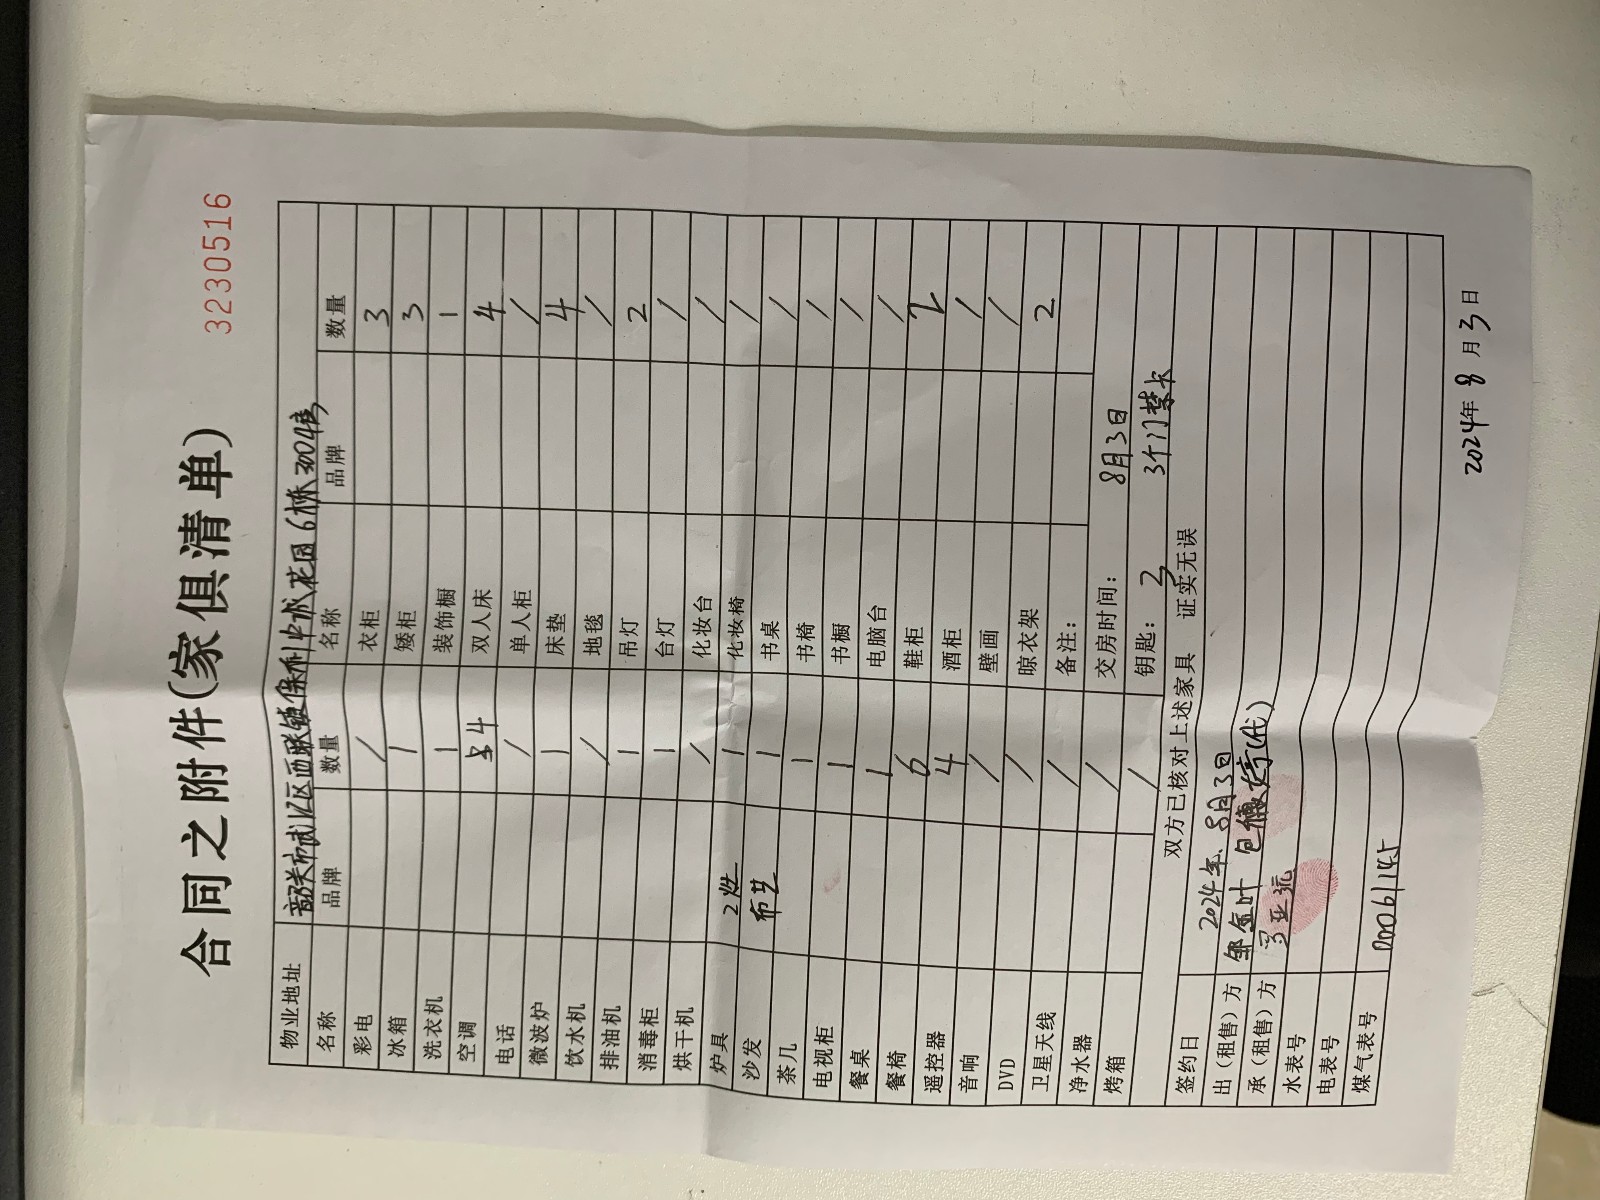 合同之附件(家俱清单)
3230516
物业地址 韶关市武江区西联镇保利中 花园6栋3004房
名称 品牌 数量 名称 品牌 数量
彩电 / 衣柜 3
冰箱 1 矮柜 3
洗衣机 1 装饰橱 1
空调 4 双人床 4
电话 / 单人柜 /
微波炉 1 床垫 4
饮水机 / 地毯 /
排油机 1 吊灯 2
消毒柜 1 台灯 /
烘干机 / 化妆台 /
炉具 2灶 1 化妆椅 /
沙发 布艺 1 书桌 /
茶几 1 书椅 /
电视柜 1 书橱 /
餐桌 1 电脑台 /
餐椅 6 鞋柜 2
遥控器 4 酒柜 /
音响 / 壁画 /
DVD / 晾衣架 2
卫星天线 / 备注：
净水器 / 交房时间： 8月3日
烤箱 / 钥匙： 2 3个门禁卡
双方已核对上述家具 证实无误
签约日 2024年、8月3日
出（租售）方 邹金叶 包德婷(代)
承（租售）方
水表号
电表号
煤气表号 00061145
2024年 8 月 3 日